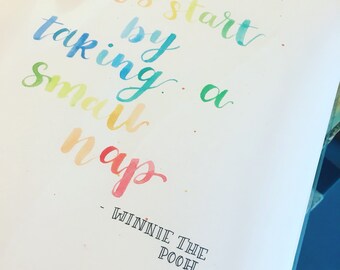 's start
by
taking a
small
nap
- WINNIE THE
POOH